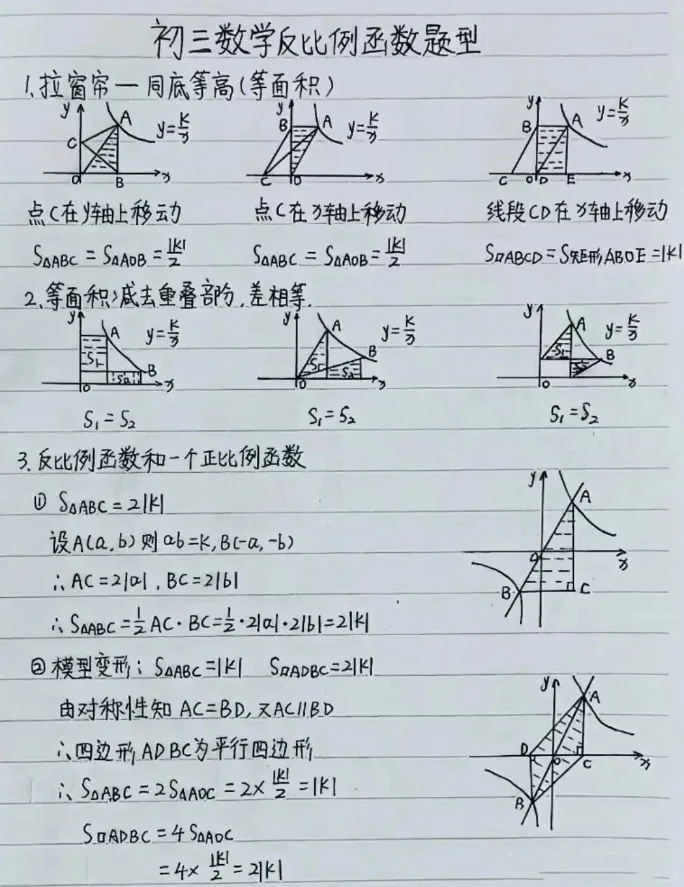 初三数学反比例函数题型
1.拉窗帘—同底等高(等面积)
y A C O B x y=K/x
y B A C O x y=K/x
y B A C O D E x y=K/x
点C在y轴上移动 点C在x轴上移动 线段CD在x轴上移动
S△ABC=S△AOB=|K|/2 S△ABC=S△AOB=|K|/2 S▱ABCD=S矩形ABOE=|K|
2.等面积减去重叠部分,差相等.
y A S1 B S2 O x y=K/x
y A S1 B S2 O x y=K/x
y A S1 B O x y=K/x
S1=S2 S1=S2 S1=S2
3.反比例函数和一个正比例函数
① S△ABC=2|K|
设A(a,b)则ab=K,B(-a,-b)
∴AC=2|a|,BC=2|b|
∴S△ABC=1/2AC·BC=1/2·2|a|·2|b|=2|K|
y A O x B C
②模型变形:S△ABC=|K| S▱ADBC=2|K|
由对称性知AC=BD,又AC∥BD
∴四边形ADBC为平行四边形
∴S△ABC=2S△AOC=2×|K|/2=|K|
S▱ADBC=4S△AOC
=4×|K|/2=2|K|
y A D O C x B